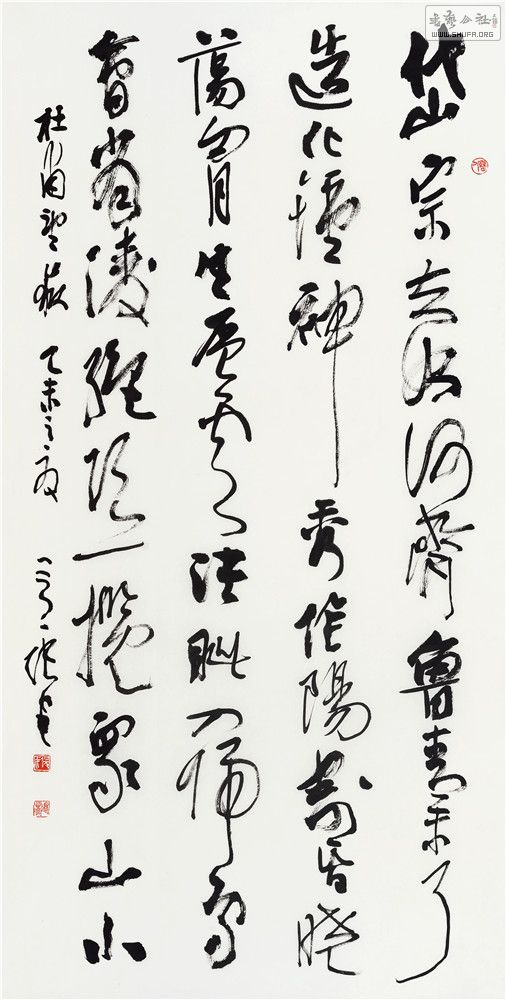 書藝公社
WWW.SHUFA.ORG
岱宗夫如何齊魯青未了
造化鍾神秀陰陽割昏曉
蕩胸生層雲決眦入歸鳥
會當凌絕頂一攬眾山小
杜甫望嶽 乙未之夏